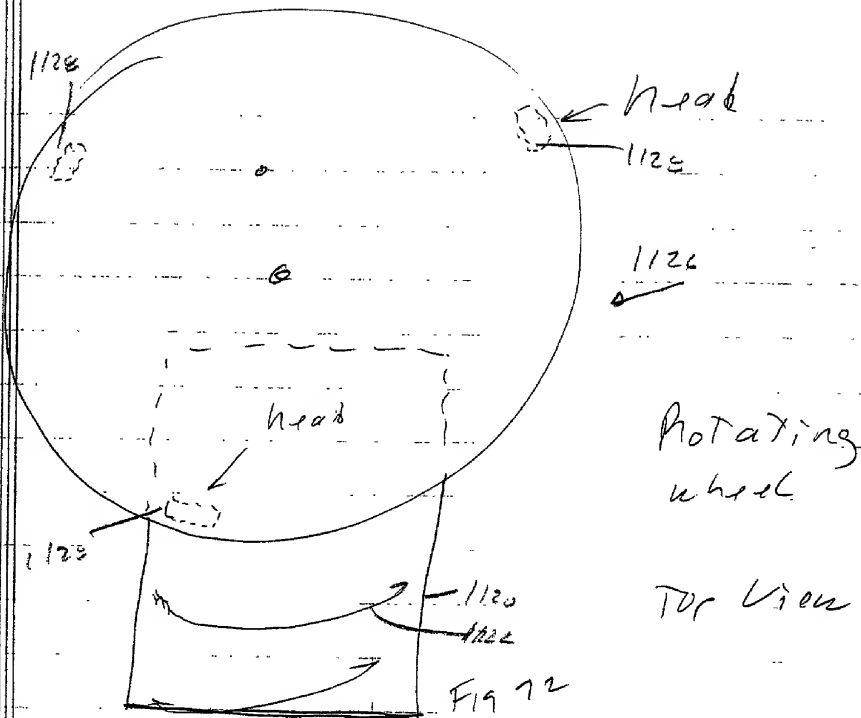 1128
head
1128
1126
head
Rotating
wheel
1128
1120
Top View
Fig 72